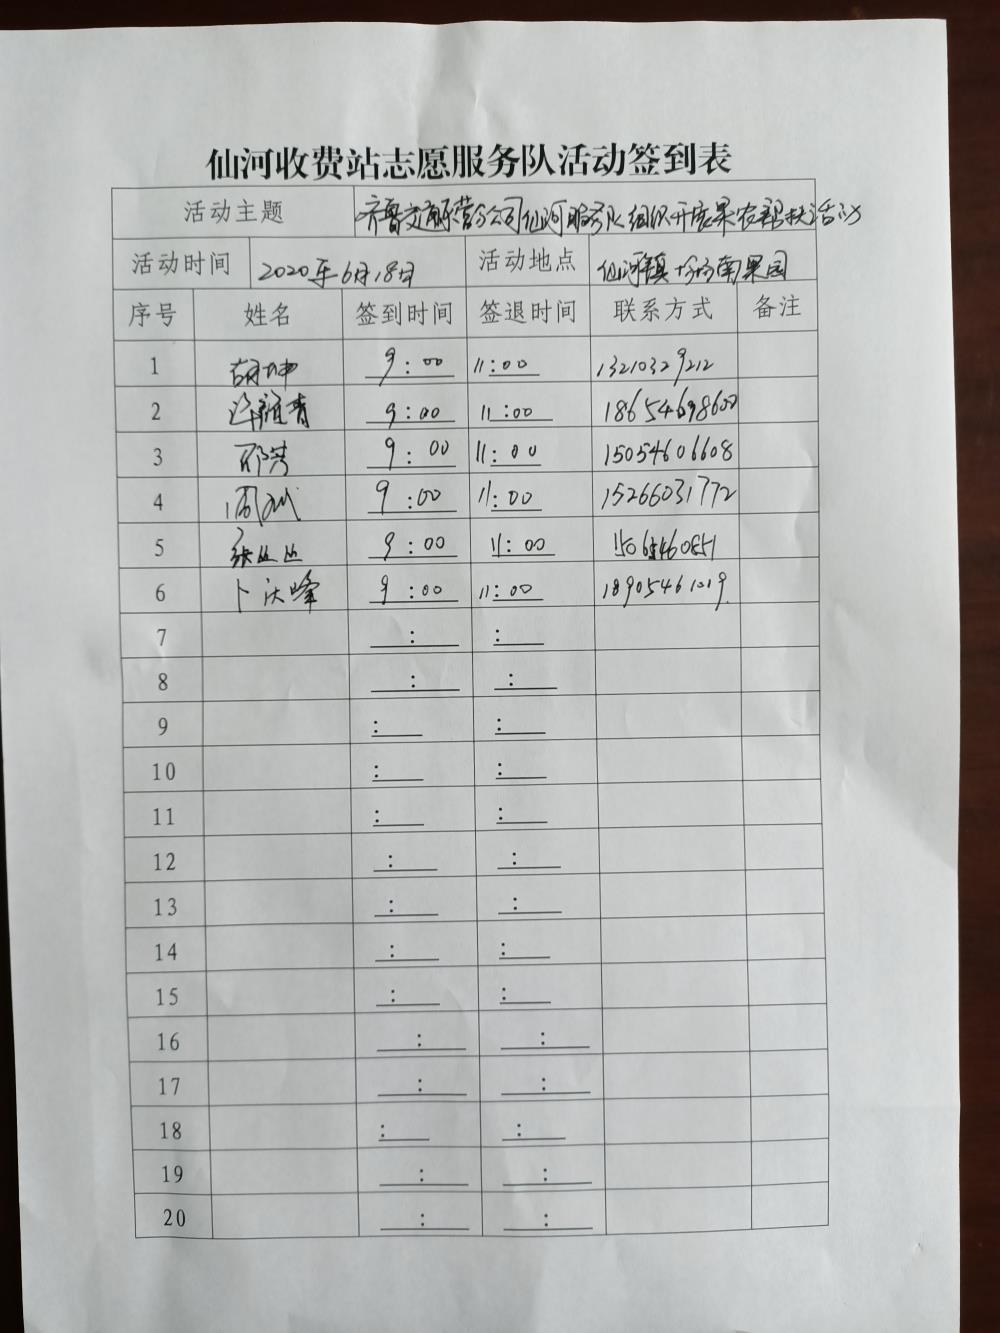 仙河收费站志愿服务队活动签到表
活动主题 齐鲁交通东营分公司仙河服务队组织开展果农帮扶活动
活动时间 2020年6月18号 活动地点 仙河镇 南果园
序号 姓名 签到时间 签退时间 联系方式 备注
1 胡坤 9:00 11:00 13210329212
2 9:00 11:00 18654698600
3 邵芳 9:00 11:00 15054606608
4 周斌 9:00 11:00 15266031772
5 张丛丛 9:00 11:00
6 卜庆峰 9:00 11:00 18905461019
7 : :
8 : :
9 : :
10 : :
11 : :
12 : :
13 : :
14 : :
15 : :
16 : :
17 : :
18 : :
19 : :
20 : :